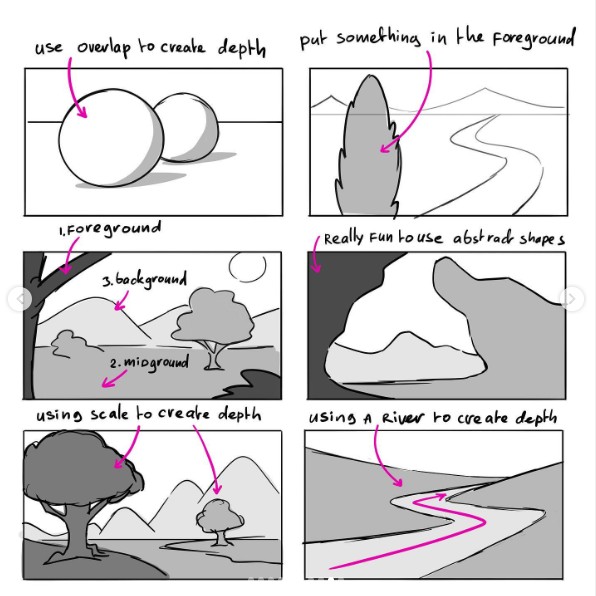 use overlap to create depth
put something in the foreground
1. foreground
3. background
2. midground
Really Fun to use abstract shapes
using scale to create depth
using A River to create depth